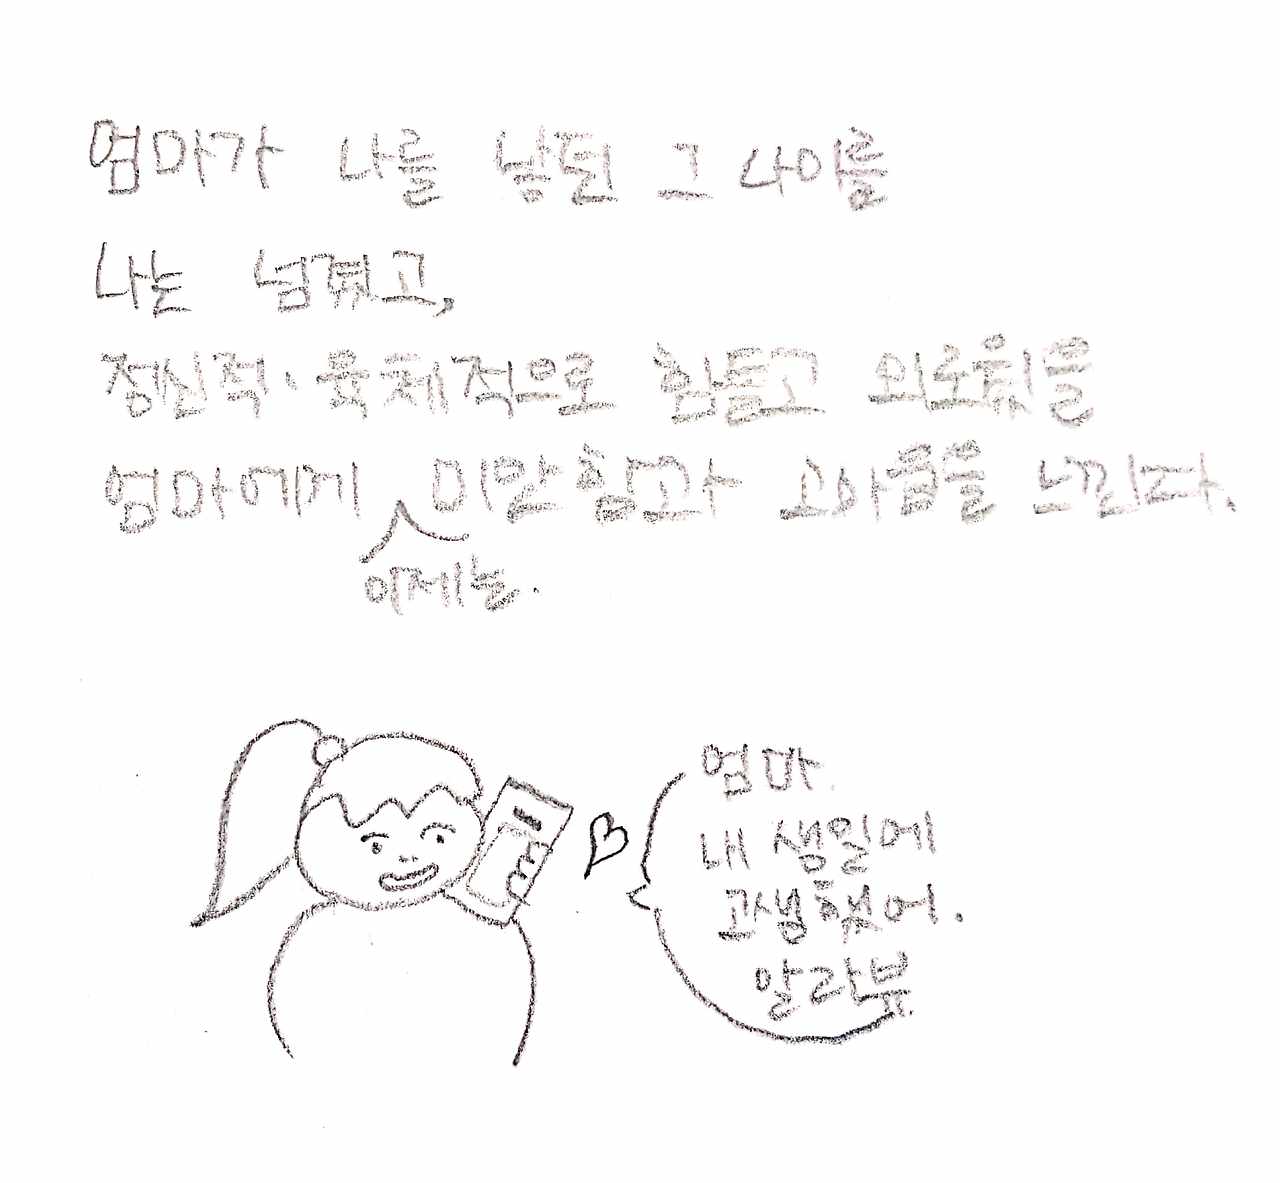 엄마가 나를 낳던 그 나이를
나는 넘겼고,
정신적·육체적으로 힘들고 외로웠을
엄마에게 미안함과 고마움을 느낀다.
이제는.
엄마.
내 생일에
고생했어.
알라뷰